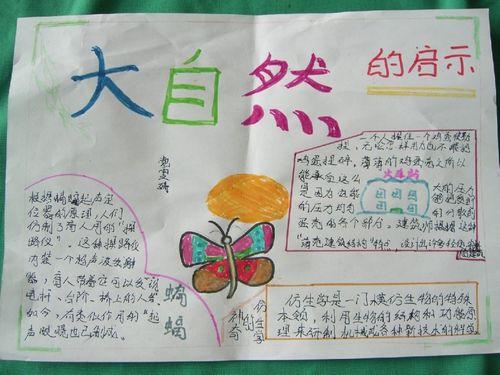 大自然
的启示
一个人握住一个鸡蛋使劲
捏,无论怎样用力也不能把
鸡蛋捏碎,薄薄的鸡蛋壳之所以
能承受这么
大的压力
是因为它能
够把受到
的压力均匀
的分散到
蛋壳的各个部分。建筑师根据这种
火车站
根据蝙蝠超声定
位器的原理,人们
仿制了盲人用的“探
路仪”。这种探路仪
内装一个超声波发射
器,盲人带着它可以发现
电杆、台阶、桥上的人等
如今,有类似作用的“超
声眼镜也已制成。
蝙蝠
神奇的仿生学
仿生学是一门模仿生物的特殊
本领,利用生物的结构和功能原
理来研制机械或各种新技术的科学